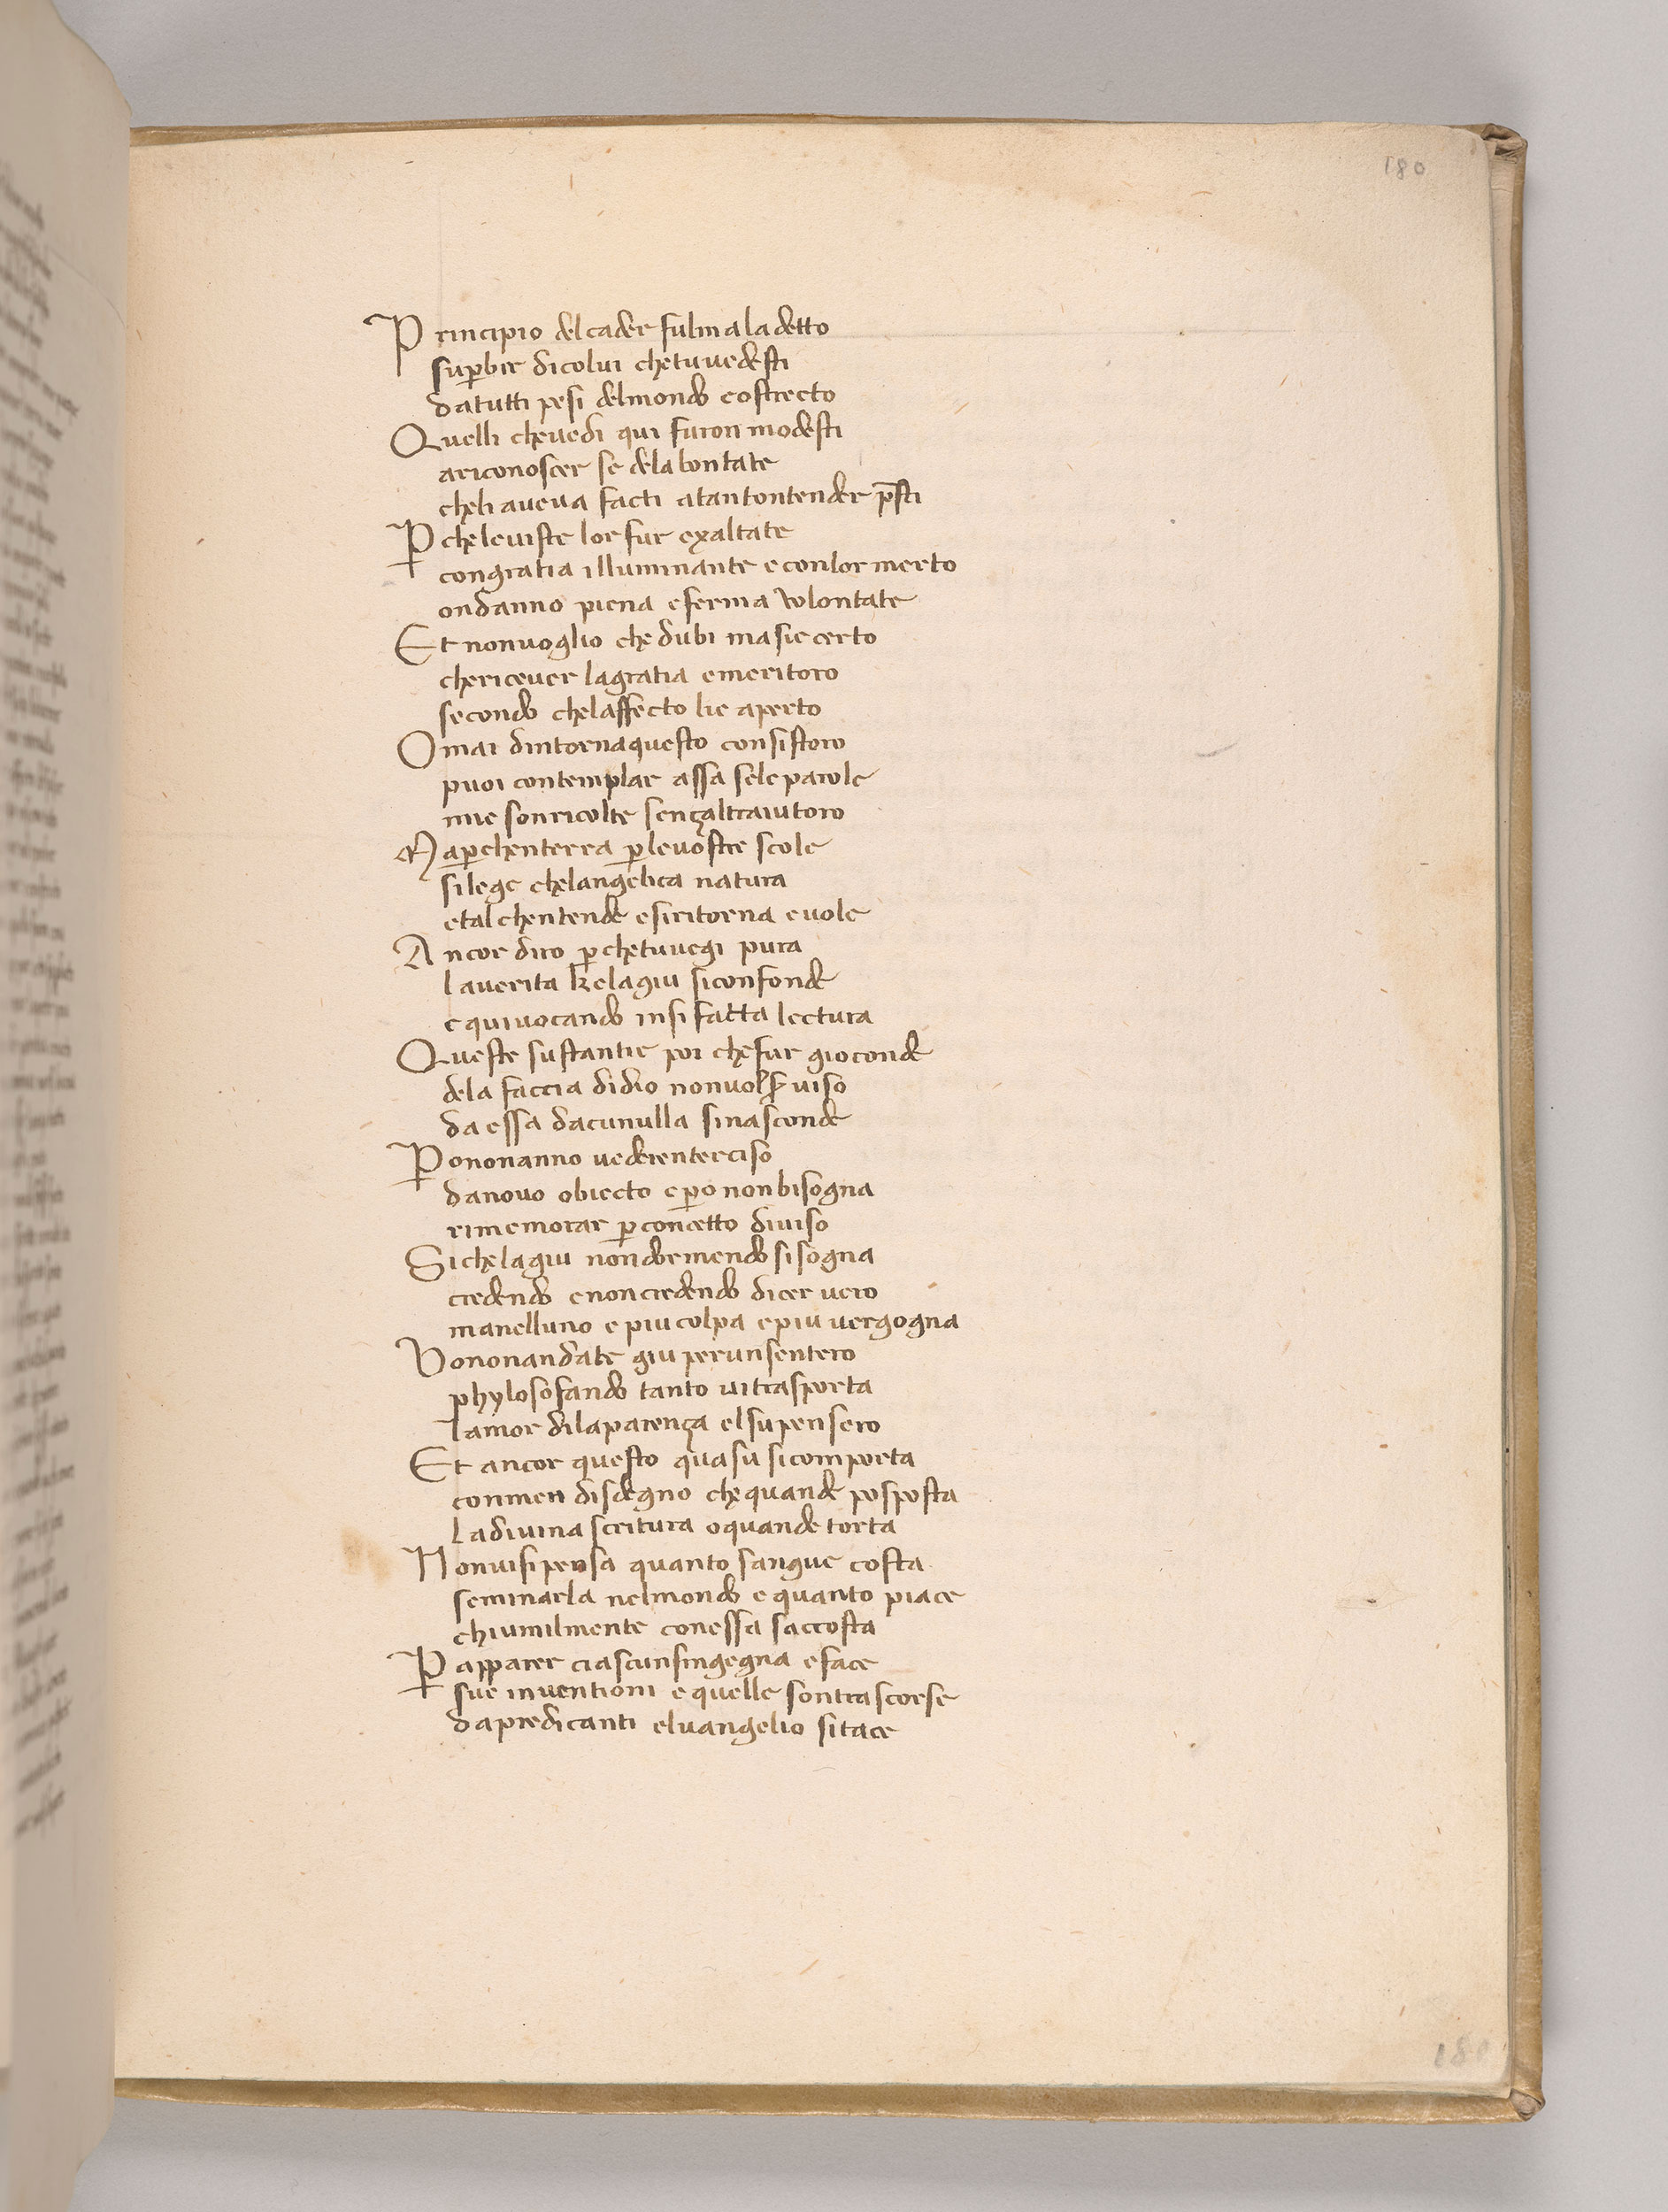 180
Principio del cader fulmaladetto
suꝑbir dicolui chetuuedesti
datutti pesi delmondo costrecto
Quelli cheuedi qui furon modesti
ariconoscer se dela bontate
cheli aueua facti atantontender p̄sti
Ꝑcheleuiste lor fur exaltate
congratia illuminante econlor merto
ondanno piena eferma volontate
Et nonuoglio che dubi masie certo
chericeuer lagratia emeritoro
secondo chelaffecto lie aperto
Omai dintornaquesto consistoro
puoi contemplar assa sele parole
mie sonricolte sençaltraiutoro
Maꝑchenterra ꝑleuostre scole
silege chelangelica natura
etal chentende esiritorna euole
Ancor diro ꝑchetuuegi pura
lauerita kelagiu siconfonde
equiuocando insi fatta lectura
Queste sustantie poi chefur gioconde
dela faccia didio nonuolser uiso
da essa dacunulla sinasconde
Ꝑononanno uederenterciso
danouo obiecto eꝑo nonbisogna
rimemorar ꝑconcetto diuiso
Sichelagiu nondormendo sisogna
credendo enoncredendo dicer uero
manelluno e piu colpa epiu uergogna
Vononandate giu perunsentero
phylosofando tanto uitrasporta
lamor dilaparença elsupensero
Et ancor questo quasu sicomporta
conmen disdegno chequande posposta
ladiuina scritura oquande torta
Nonuisipensa quanto sangue costa
seminarla nelmondo equanto piace
chiumilmente conessa saccosta
Ꝑ apparer ciascunsingegna eface
sue inuentioni equelle sontrascorse
dapredicanti eluangelio sitace
180